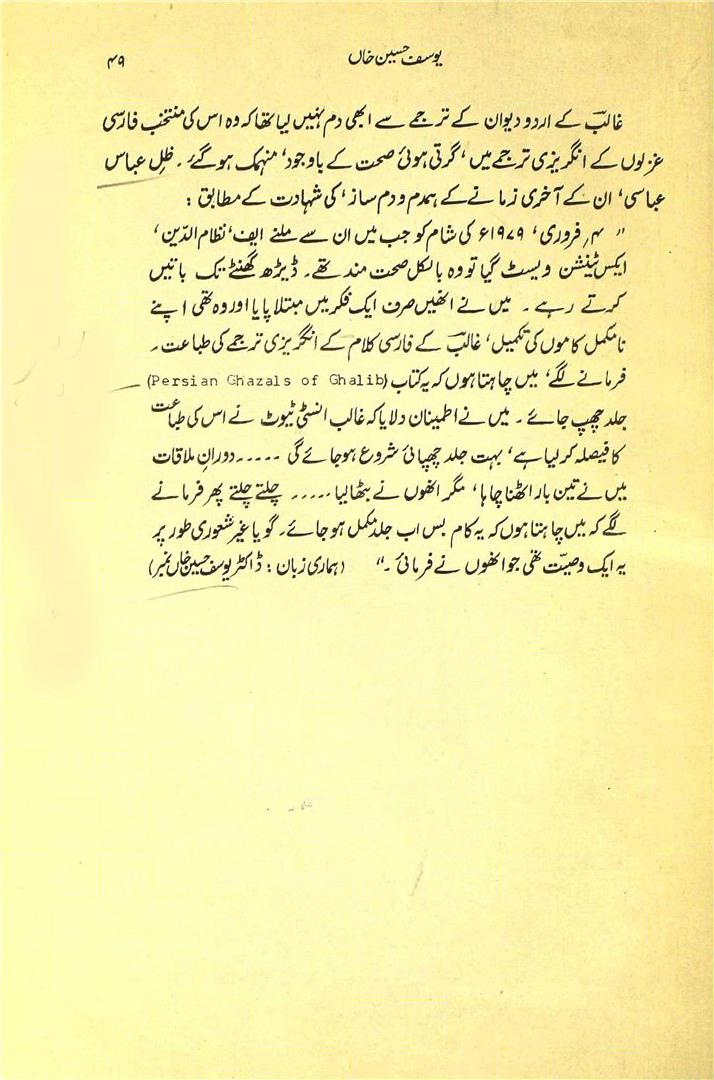 یوسف حسین خاں ۴۹
غالبؔ کے اردو دیوان کے ترجمے سے ابھی دم نہیں لیا تھا کہ وہ اس کی منتخب فارسی
غزلوں کے انگریزی ترجمے میں، گرتی ہوئی صحت کے باوجود، منہمک ہوگئے۔ ظلِ عباس
عباسی، ان کے آخری زمانے کے ہمدم و دم ساز، کی شہادت کے مطابق:
"۴؍ فروری، ۱۹۷۹ء کی شام کو جب میں ان سے ملنے ایف، نظام الدّین،
ایکس ٹینشن ویسٹ گیا تو وہ بالکل صحت مند تھے۔ ڈیڑھ گھنٹے تک باتیں
کرتے رہے۔ میں نے انھیں صرف ایک فکر میں مبتلا پایا اور وہ تھی اپنے
نامکمل کاموں کی تکمیل، غالبؔ کے فارسی کلام کے انگریزی ترجمے کی طباعت۔
فرمانے لگے، میں چاہتا ہوں کہ یہ کتاب (Persian Ghazals of Ghalib)
جلد چھپ جائے۔ میں نے اطمینان دلایا کہ غالب انسٹی ٹیوٹ نے اس کی طباعت
کا فیصلہ کر لیا ہے، بہت جلد چھپائی شروع ہو جائے گی ..... دورانِ ملاقات
میں نے تین بار اٹھنا چاہا، مگر انھوں نے بٹھا لیا ..... چلتے چلتے پھر فرمانے
لگے کہ میں چاہتا ہوں کہ یہ کام بس اب جلد مکمل ہو جائے۔ گویا غیر شعوری طور پر
یہ ایک وصیت تھی جو انھوں نے فرمائی۔" (ہماری زبان: ڈاکٹر یوسف حسین خاں نمبر)